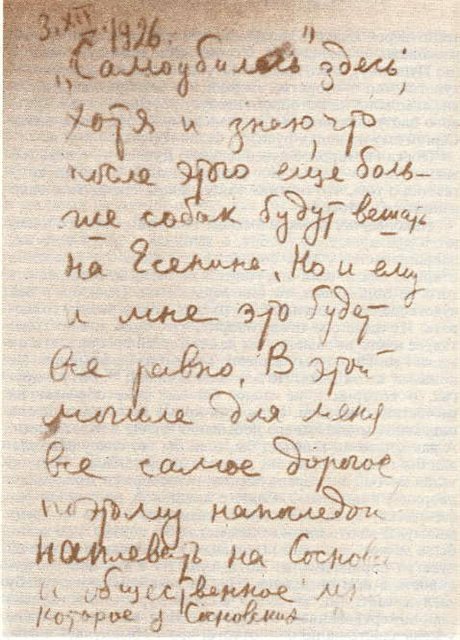 3. XII 1926.
„Самоубилась" здесь,
хотя и знаю, что
после этого еще боль-
ше собак будут вешать
на Есенина. Но и ему
и мне это будет
все равно. В этой
могиле для меня
все самое дорогое,
поэтому напоследок
наплевать на Соснов
и общественное
которое у Сосновских